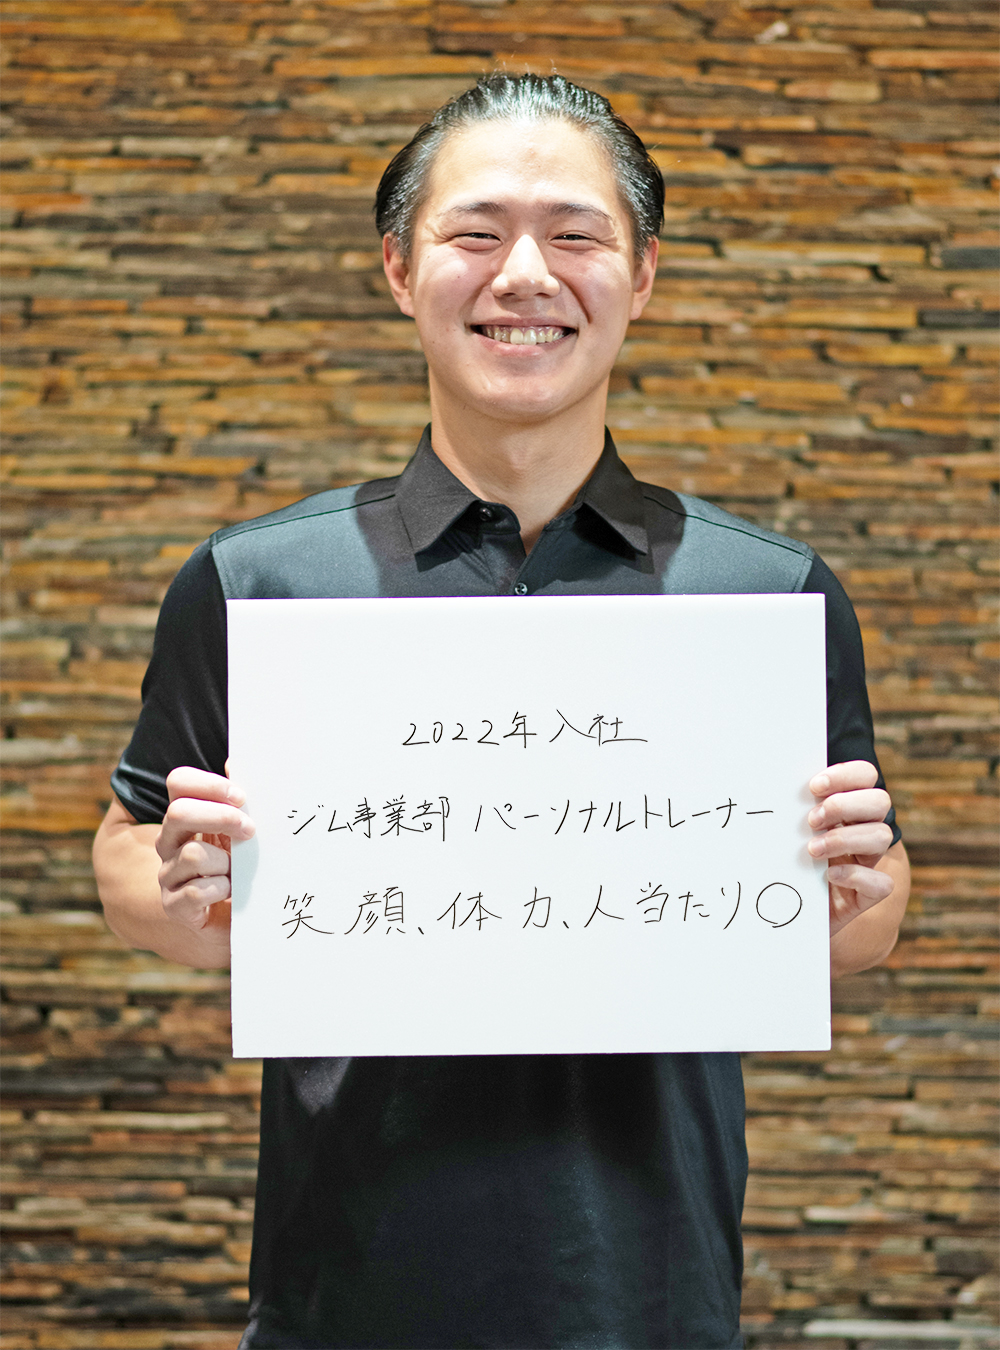 2022年入社
ジム事業部 パーソナルトレーナー
笑顔、体力、人当たり○